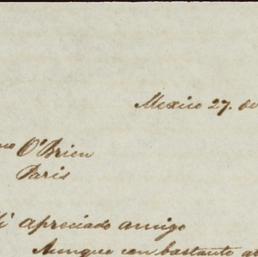 Mexico 27. de
O'Brien
Paris
Mi apreciado amigo
Aunque con bastante